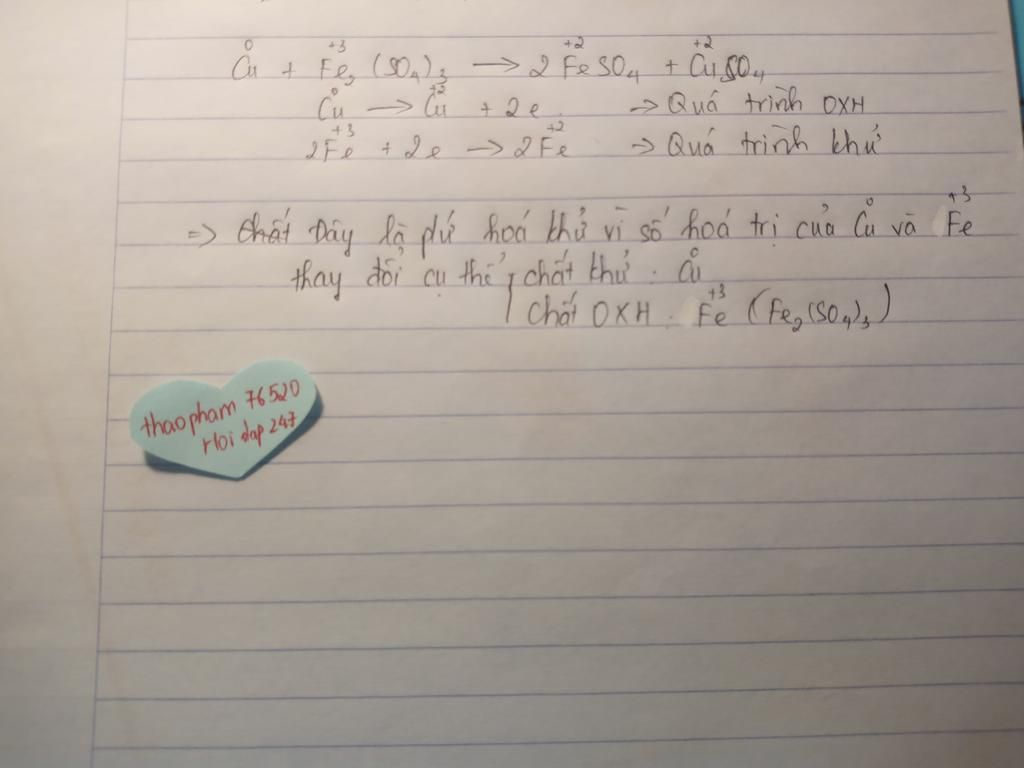 0 +3 +2 +2
Cu + Fe₂(SO₄)₃ → 2FeSO₄ + CuSO₄
0 +2
Cu → Cu + 2e → Quá trình OXH
+3 +2
2Fe + 2e → 2Fe → Quá trình khử
0 +3
=> Đây là pứ hoá khử vì số hoá trị của Cu và Fe
0
thay đổi cụ thể chất khử : Cu
+3
chất OXH : Fe (Fe₂(SO₄)₃)
thaopham 76520
Hoi dap 247